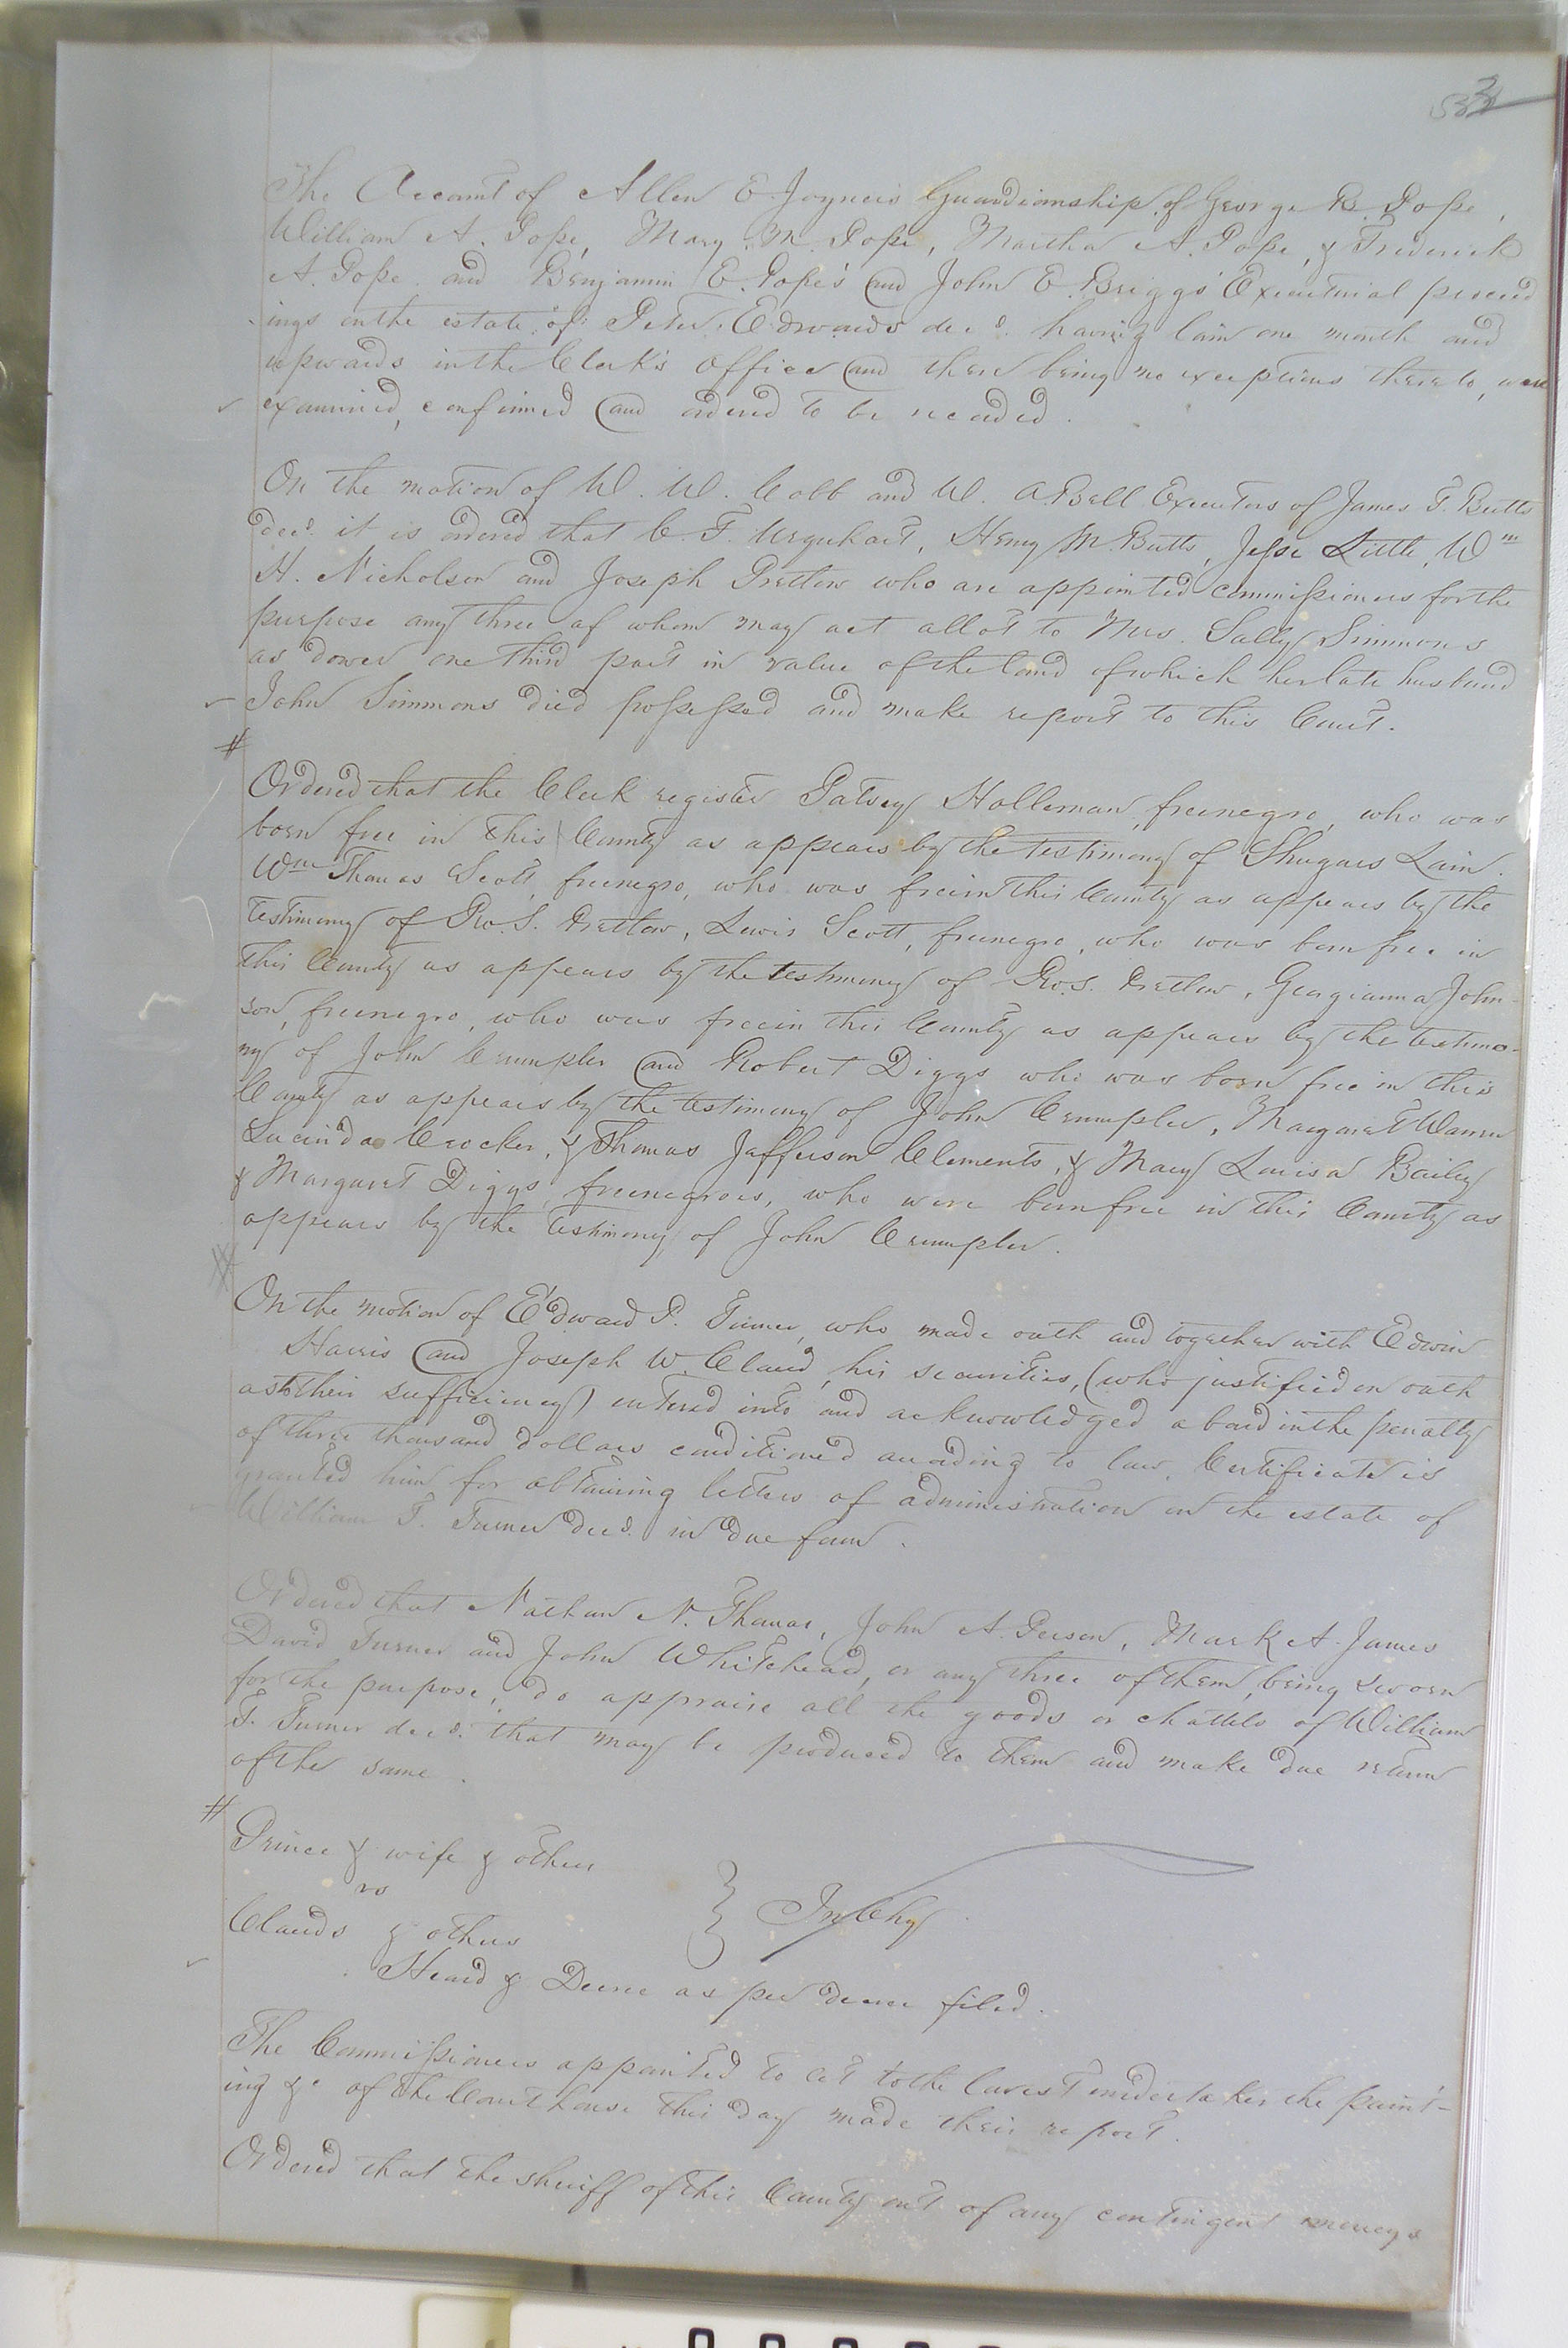 The Account of Allen E. Joyner's Guardianship of George B. Pope,
William A. Pope, Mary M. Pope, Martha A. Pope, & Frederick
A. Pope and Benjamin E. Pope's and John E. Briggs' Executorial proceed
ings on the estate of Peter Edwards dec.d having lain one month and
upwards in the Clerk's office and there being no exceptions thereto, were
examined, confirmed and ordered to be recorded.
On the motion of W. W. Cobb and W. A. Bell Executors of James T. Butts
decd. it is ordered that C. F. Urquhart, Henry M. Butts, Jesse Little, Wm
H. Nicholson and Joseph Pretlow who are appointed commissioners for the
purpose any three of whom may act allot to Mrs. Sally Simmons
as dower one third part in value of the land of which her late husband
John Simmons died possessed and make report to this Court.
Ordered that the Clerk register Patsey Holleman, free negro, who was
born free in this County as appears by the testimony of Shugars Lain.
Wm Thomas Scott, free negro, who was free in this County as appears by the
testimony of Ro. S. Pretlow, Lewis Scott, free negro, who was born free in
this County as appears by the testimony of Ro. S. Pretlow, Georgianna John-
son, free negro, who was free in this County as appears by the testimo-
ny of John Crumpler and Robert Diggs who was born free in this
County as appears by the testimony of John Crumpler, Margaret Warren
Lucinda Crocker, & Thomas Jefferson Clements, & Mary Louisa Bailey
& Margaret Diggs, free negroes, who were born free in this County as
appears by the testimony of John Crumpler.
On the motion of Edward P. Turner, who made oath and together with Edwin
Harris and Joseph W. Claud, his securities, (who justified on oath
as to their sufficiency) entered into and acknowledged a bond in the penalty
of three thousand dollars conditioned according to law, Certificate is
granted him for obtaining letters of administration on the estate of
William T. Turner decd. in due form.
Ordered that Nathan N. Thomas, John A. Person, Mark A. James
David Turner and John Whitehead, or any three of them, being sworn
for the purpose, do appraise all the goods or chattels of William
T. Turner decd. that may be produced to them and make due return
of the same.
Prince & wife & others
vs
Clauds & others
} In Chy
Heard & Decree as per decree filed.
The Commissioners appointed to let to the lowest undertaker the paint-
ing &c of the Court house this day made their report.
Ordered that the sheriff of this County out of any contingent moneys